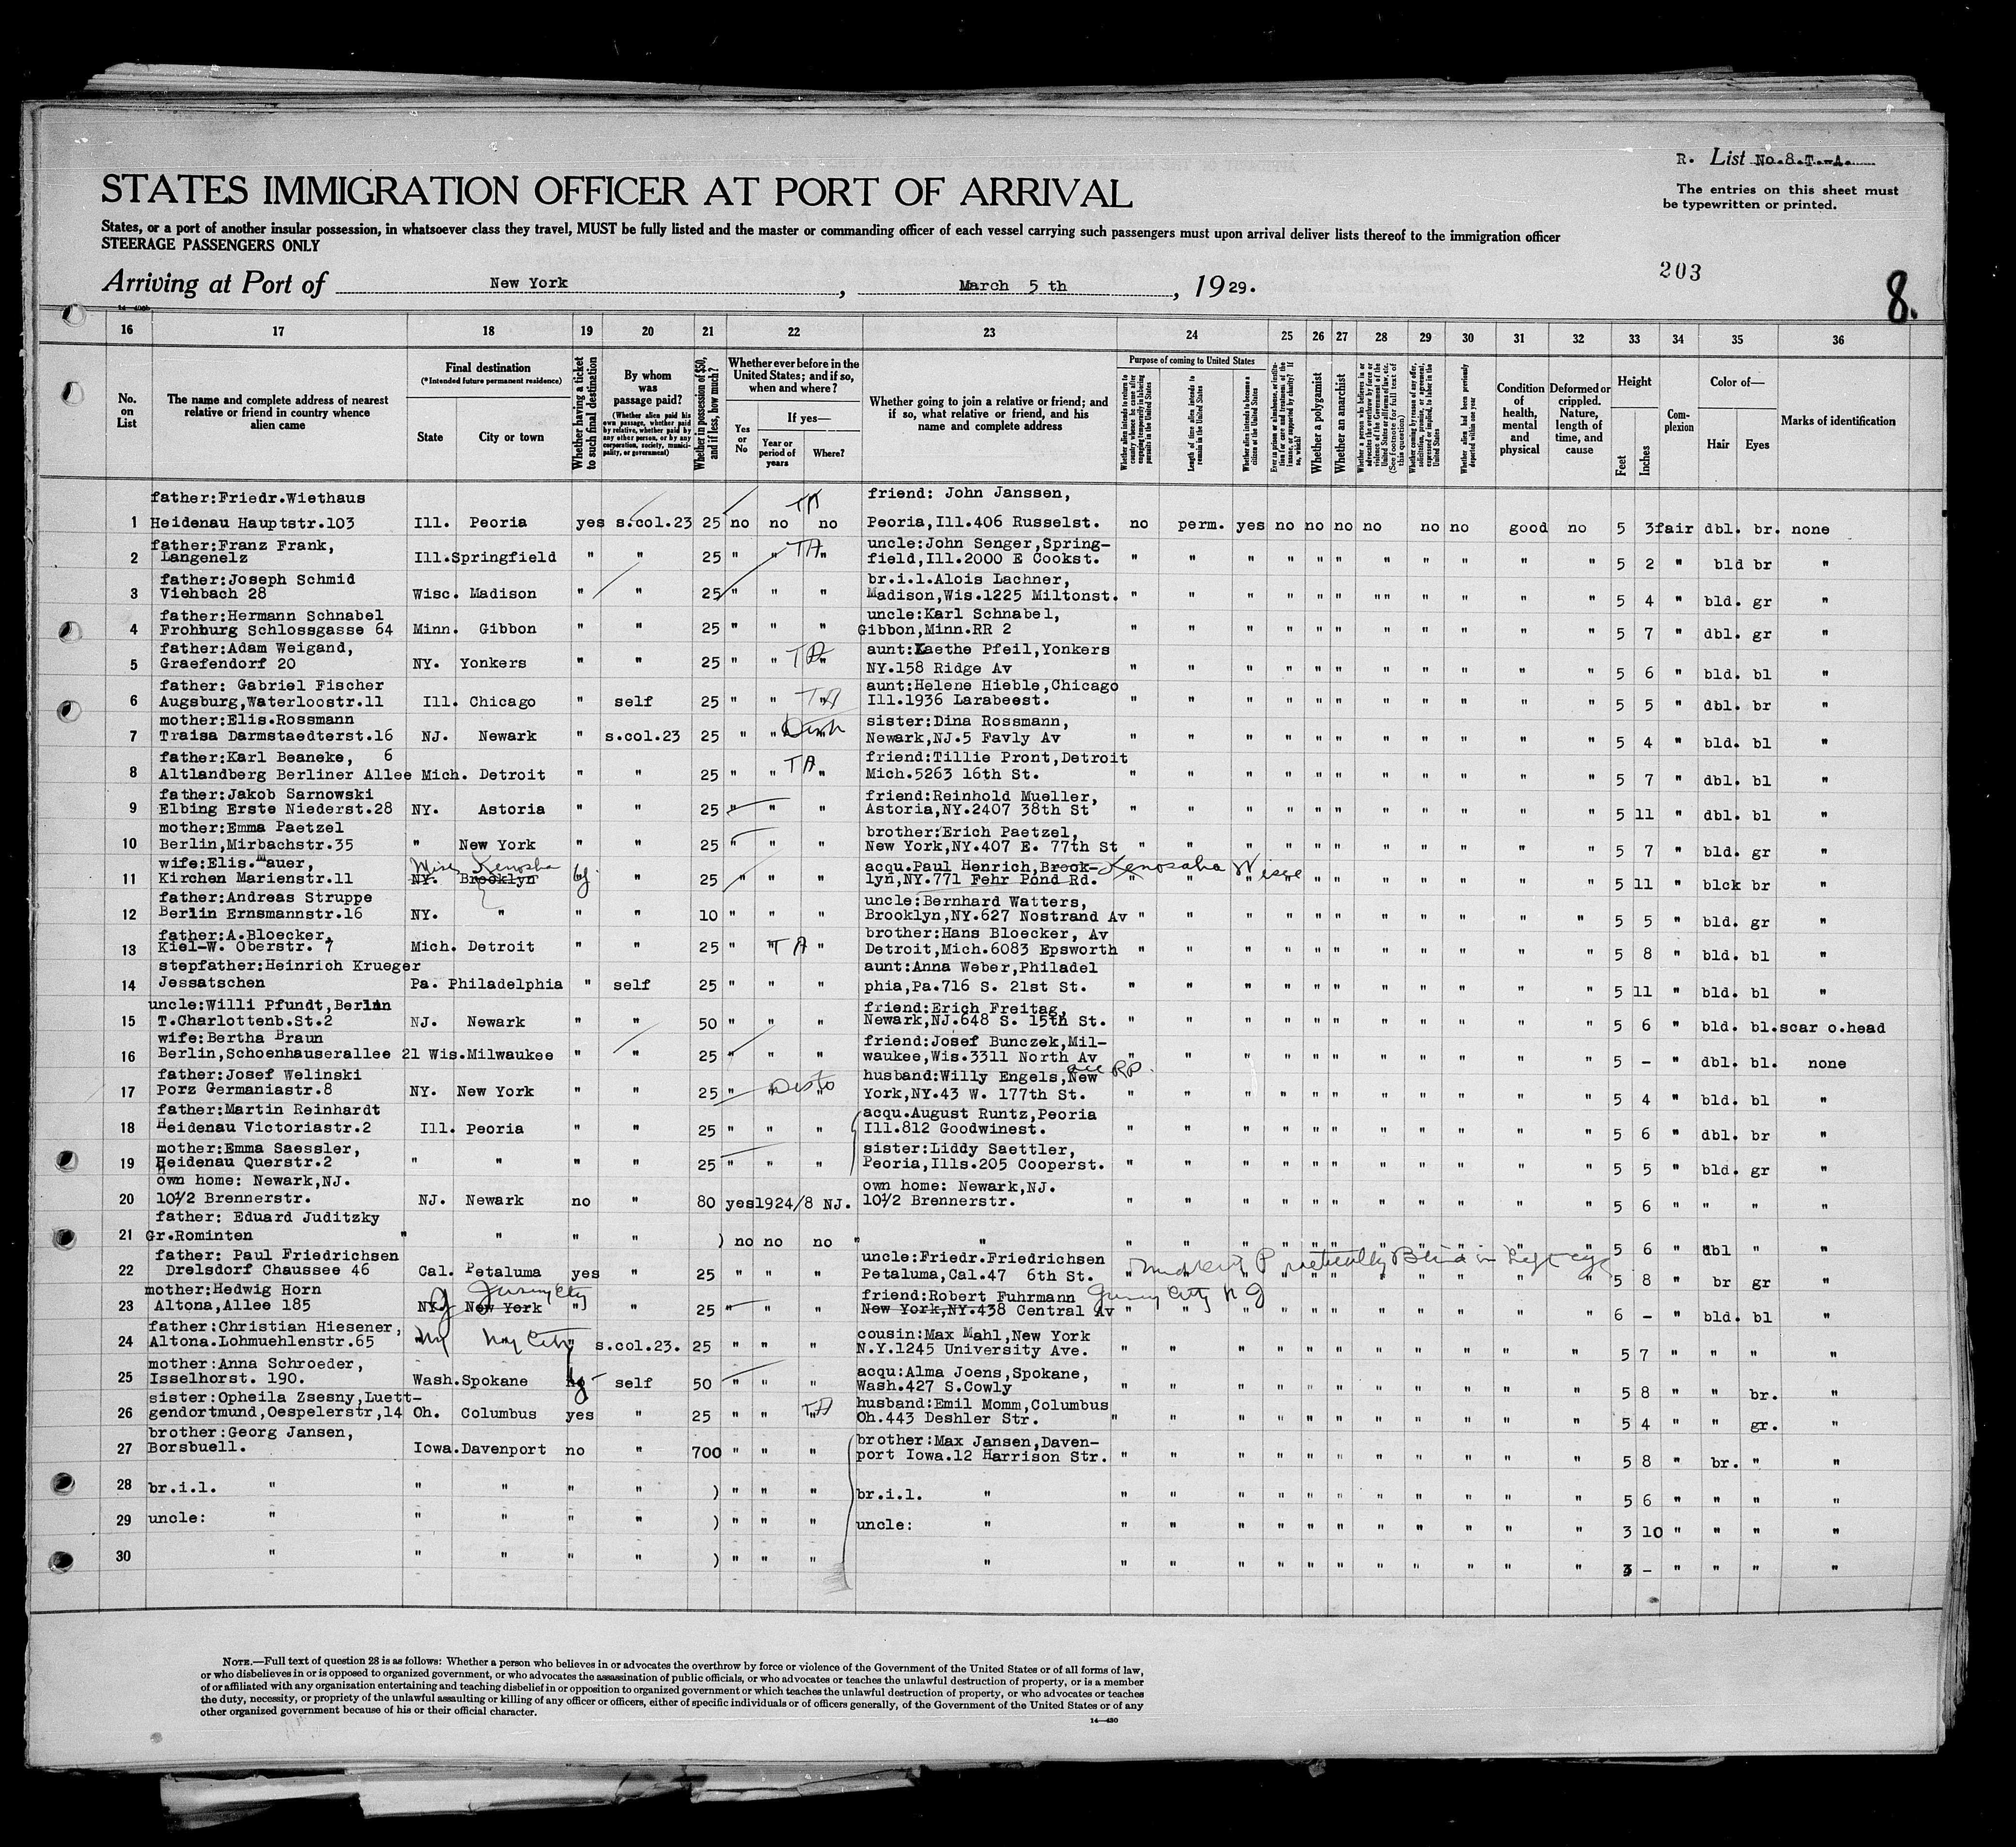 R. List No. 8 T.-A.
STATES IMMIGRATION OFFICER AT PORT OF ARRIVAL
The entries on this sheet must
be typewritten or printed.
States, or a port of another insular possession, in whatsoever class they travel, MUST be fully listed and the master or commanding officer of each vessel carrying such passengers must upon arrival deliver lists thereof to the immigration officer
STEERAGE PASSENGERS ONLY
203
Arriving at Port of New York, March 5 th, 1929.
8.
16 17 18 19 20 21 22 23 24 25 26 27 28 29 30 31 32 33 34 35 36
No. on List
The name and complete address of nearest relative or friend in country whence alien came
Final destination
(*Intended future permanent residence)
State City or town
Whether having a ticket to such final destination
By whom was passage paid?
(Whether alien paid his own passage, whether paid by relative, whether paid by any other person, or by any corporation, society, municipality, or government)
Whether in possession of $50, and if less, how much?
Whether ever before in the United States; and if so, when and where?
Yes or No
If yes—
Year or period of years
Where?
Whether going to join a relative or friend; and if so, what relative or friend, and his name and complete address
Purpose of coming to United States
Whether alien intends to return to country whence he came after engaging temporarily in laboring pursuits in the United States
Length of time alien intends to remain in the United States
Whether alien intends to become a citizen of the United States
Whether a polygamist
Whether an anarchist
Condition of health, mental and physical
Deformed or crippled. Nature, length of time, and cause
Height
Feet Inches
Complexion
Color of—
Hair Eyes
Marks of identification
father:Friedr.Wiethaus TA friend: John Janssen,
1 Heidenau Hauptstr.103 Ill. Peoria yes s.col.23 25 no no no Peoria,Ill.406 Russelst. no perm. yes no no no no no no good no 5 3 fair dbl. br. none
father:Franz Frank, TA uncle:John Senger,Spring-
2 Langenelz Ill.Springfield " " 25 " " " field,Ill.2000 E Cookst. " " " " " " " " " " " 5 2 " bld br "
father:Joseph Schmid br.i.l.Alois Lachner,
3 Viehbach 28 Wisc. Madison " " 25 " " " Madison,Wis.1225 Miltonst. " " " " " " "" " " " " 5 4 " bld. gr "
father:Hermann Schnabel uncle:Karl Schnabel,
4 Frohburg Schlossgasse 64 Minn. Gibbon " " 25 " " " Gibbon,Minn.RR 2 " " " " " " " " " " " 5 7 " dbl. gr "
father:Adam Weigand, TA aunt:Kaethe Pfeil,Yonkers
5 Graefendorf 20 NY. Yonkers " " 25 " " " NY.158 Ridge Av " " " " " " " " " " " 5 6 " bld. bl "
father: Gabriel Fischer TA aunt:Helene Hieble,Chicago
6 Augsburg,Waterloostr.11 Ill. Chicago " self 25 " " " Ill.1936 Larabeest. " " " " " " " " " " " 5 5 " dbl. br "
mother:Elis.Rossmann sister:Dina Rossmann,
7 Traisa Darmstaedterst.16 NJ. Newark " s.col.23 25 " " " Newark,NJ.5 Favly Av " " " " " " " " " " " 5 4 " bld. bl "
father:Karl Beaneke, 6 TA friend:Tillie Pront,Detroit
8 Altlandberg Berliner Allee Mich. Detroit " " 25 " " " Mich.5263 16th St. " " " " " " " " " " " 5 7 " dbl. bl "
father:Jakob Sarnowski friend:Reinhold Mueller,
9 Elbing Erste Niederst.28 NY. Astoria " " 25 " " " Astoria,NY.2407 38th St " " " " " " " " " " " 5 11 " dbl. bl "
mother:Emma Paetzel brother:Erich Paetzel,
10 Berlin,Mirbachstr.35 " New York " " 25 " " " New York,NY.407 E. 77th St " " " " " " " " " " " 5 7 " bld. gr "
wife:Elis.Mauer, Wisc Kenosha acqu.Paul Henrich,Brook- Kenosaha Wisc
11 Kirchen Marienstr.11 NY. Brooklyn " 25 " " " lyn,NY.771 Fehr Pond Rd. " " " " " " " " " " " 5 11 " blck br "
father:Andreas Struppe uncle:Bernhard Watters,
12 Berlin Ernsmannstr.16 NY. " " " 10 " " " Brooklyn,NY.627 Nostrand Av " " " " " " " " " " " 5 5 " bld. gr "
father:A.Bloecker, brother:Hans Bloecker, Av
13 Kiel-W. Oberstr. 7 Mich. Detroit " " 25 " " TA " Detroit,Mich.6083 Epsworth " " " " " " " " " " " 5 8 " bld. bl "
stepfather:Heinrich Krueger aunt:Anna Weber,Philadel
14 Jessatschen Pa. Philadelphia " self 25 " " " phia,Pa.716 S. 21st St. " " " " " " " " " " " 5 11 " bld. bl "
uncle:Willi Pfundt,Berlin friend:Erich Freitag,
15 T.Charlottenb.St.2 NJ. Newark " " 50 " " " Newark,NJ.648 S. 15th St. " " " " " " " " " " " 5 6 " bld. bl.scar o.head
wife:Bertha Braun friend:Josef Bunczek,Mil-
16 Berlin,Schoenhauserallee 21 Wis.Milwaukee " " 25 " " " waukee,Wis.3311 North Av " " " " " " " " " " " 5 - " dbl. bl. none
father:Josef Welinski husband:Willy Engels,New RP.
17 Porz Germaniastr.8 NY. New York " " 25 " " " York,NY.43 W. 177th St. " " " " " " " " " " " 5 4 " bld. bl "
father:Martin Reinhardt acqu.August Runtz,Peoria
18 Heidenau Victoriastr.2 Ill. Peoria " " 25 " " " Ill.812 Goodwinest. " " " " " " " " " " " 5 6 " dbl. br "
mother:Emma Saessler, sister:Liddy Saettler,
19 Heidenau Querstr.2 " " " " 25 " " " Peoria,Ills.205 Cooperst. " " " " " " " " " " " 5 5 " bld. gr "
own home: Newark,NJ. own home: Newark,NJ.
20 10½ Brennerstr. NJ. Newark no " 80 yes1924/8 NJ. 10½ Brennerstr. " " " " " " " " " " " 5 6 " " " "
father: Eduard Juditzky
21 Gr.Rominten " " " " ) no no no " " " " " " " " " " " " " 5 6 " dbl " "
father: Paul Friedrichsen uncle:Friedr.Friedrichsen Practically Blind in Left eye
22 Drelsdorf Chaussee 46 Cal. Petaluma yes " 25 " " " Petaluma,Cal.47 6th St. " " " " " " " " " " " 5 8 " br gr "
mother:Hedwig Horn Jersey City friend:Robert Fuhrmann Jersey City NJ
23 Altona,Allee 185 NY. New York " " 25 " " " New York,NY.438 Central Av " " " " " " " " " " " 6 - " bld. bl "
father:Christian Hiesener, cousin:Max Mahl,New York
24 Altona.Lohmuehlenstr.65 NY " s.col.23. 25 " " " N.Y.1245 University Ave. " " " " " " " " " " " 5 7 " " " "
mother:Anna Schroeder, acqu:Alma Joens,Spokane,
25 Isselhorst. 190. Wash.Spokane self 50 " " " Wash.427 S.Cowly " " " " " " " " " " " 5 8 " " br. "
sister:Opheila Zsesny,Luett- TA husband:Emil Momm,Columbus
26 gendortmund,Oespelerstr,14 Oh. Columbus yes " 25 " " " Oh.443 Deshler Str. " " " " " " " " " " " 5 4 " " gr. "
brother:Georg Jansen, brother:Max Jansen,Daven-
27 Borsbuell. Iowa.Davenport no " 700 " " " port Iowa.12 Harrison Str. " " " " " " " " " " " 5 8 " br. " "
28 br.i.l. " " " " " ) " " " br.i.l. " " " " " " " " " " " " 5 6 " " " "
29 uncle: " " " " " ) " " " uncle: " " " " " " " " " " " " 3 10 " " " "
30 " " " " " ) " " " " " " " " " " " " " " " 3 - " " " "
NOTE.—Full text of question 28 is as follows: Whether a person who believes in or advocates the overthrow by force or violence of the Government of the United States or of all forms of law,
or who disbelieves in or is opposed to organized government, or who advocates the assassination of public officials, or who advocates or teaches the unlawful destruction of property, or is a member
of or affiliated with any organization entertaining and teaching disbelief in or opposition to organized government or which teaches the unlawful destruction of property, or who advocates or teaches
the duty, necessity, or propriety of the unlawful assaulting or killing of any officer or officers, either of specific individuals or of officers generally, of the Government of the United States or of any
other organized government because of his or their official character.
14—430